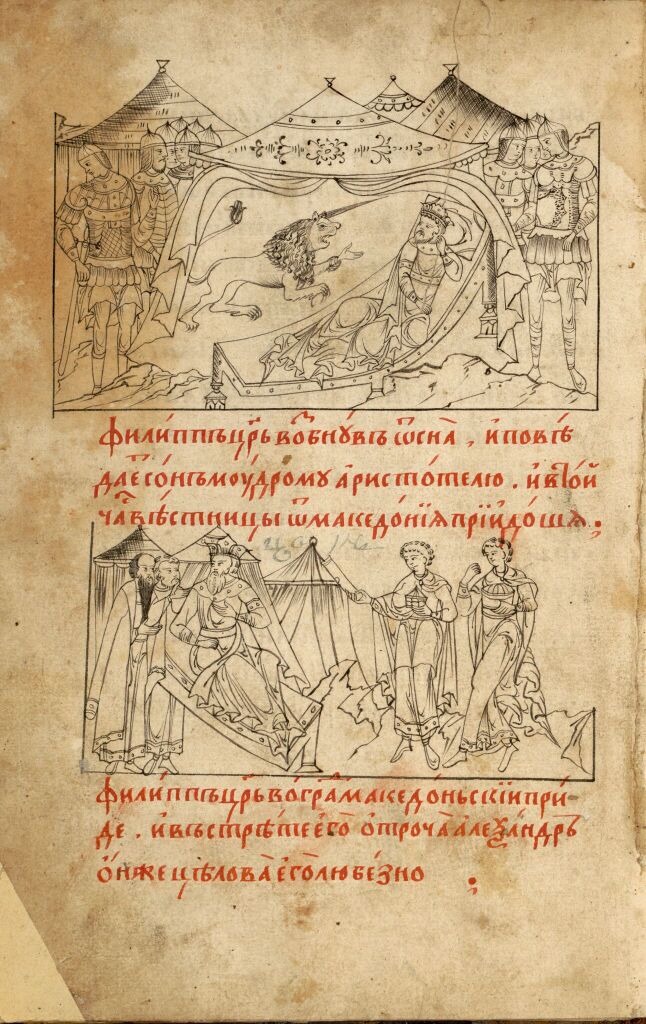 филиппъ цр҃ь воⷥбнꙋвъ ѿ сна , и повѣ
даеⷮ сонъ моудромꙋ аристотелю . и в тоⷤй
чаⷭ вѣстницы ѿ македонїя прїидоша .
филиппъ цр҃ь во граⷣ македоньскїи прї-
де . и въстрѣте его отроча алеѯандръ
онже целова его любезно .